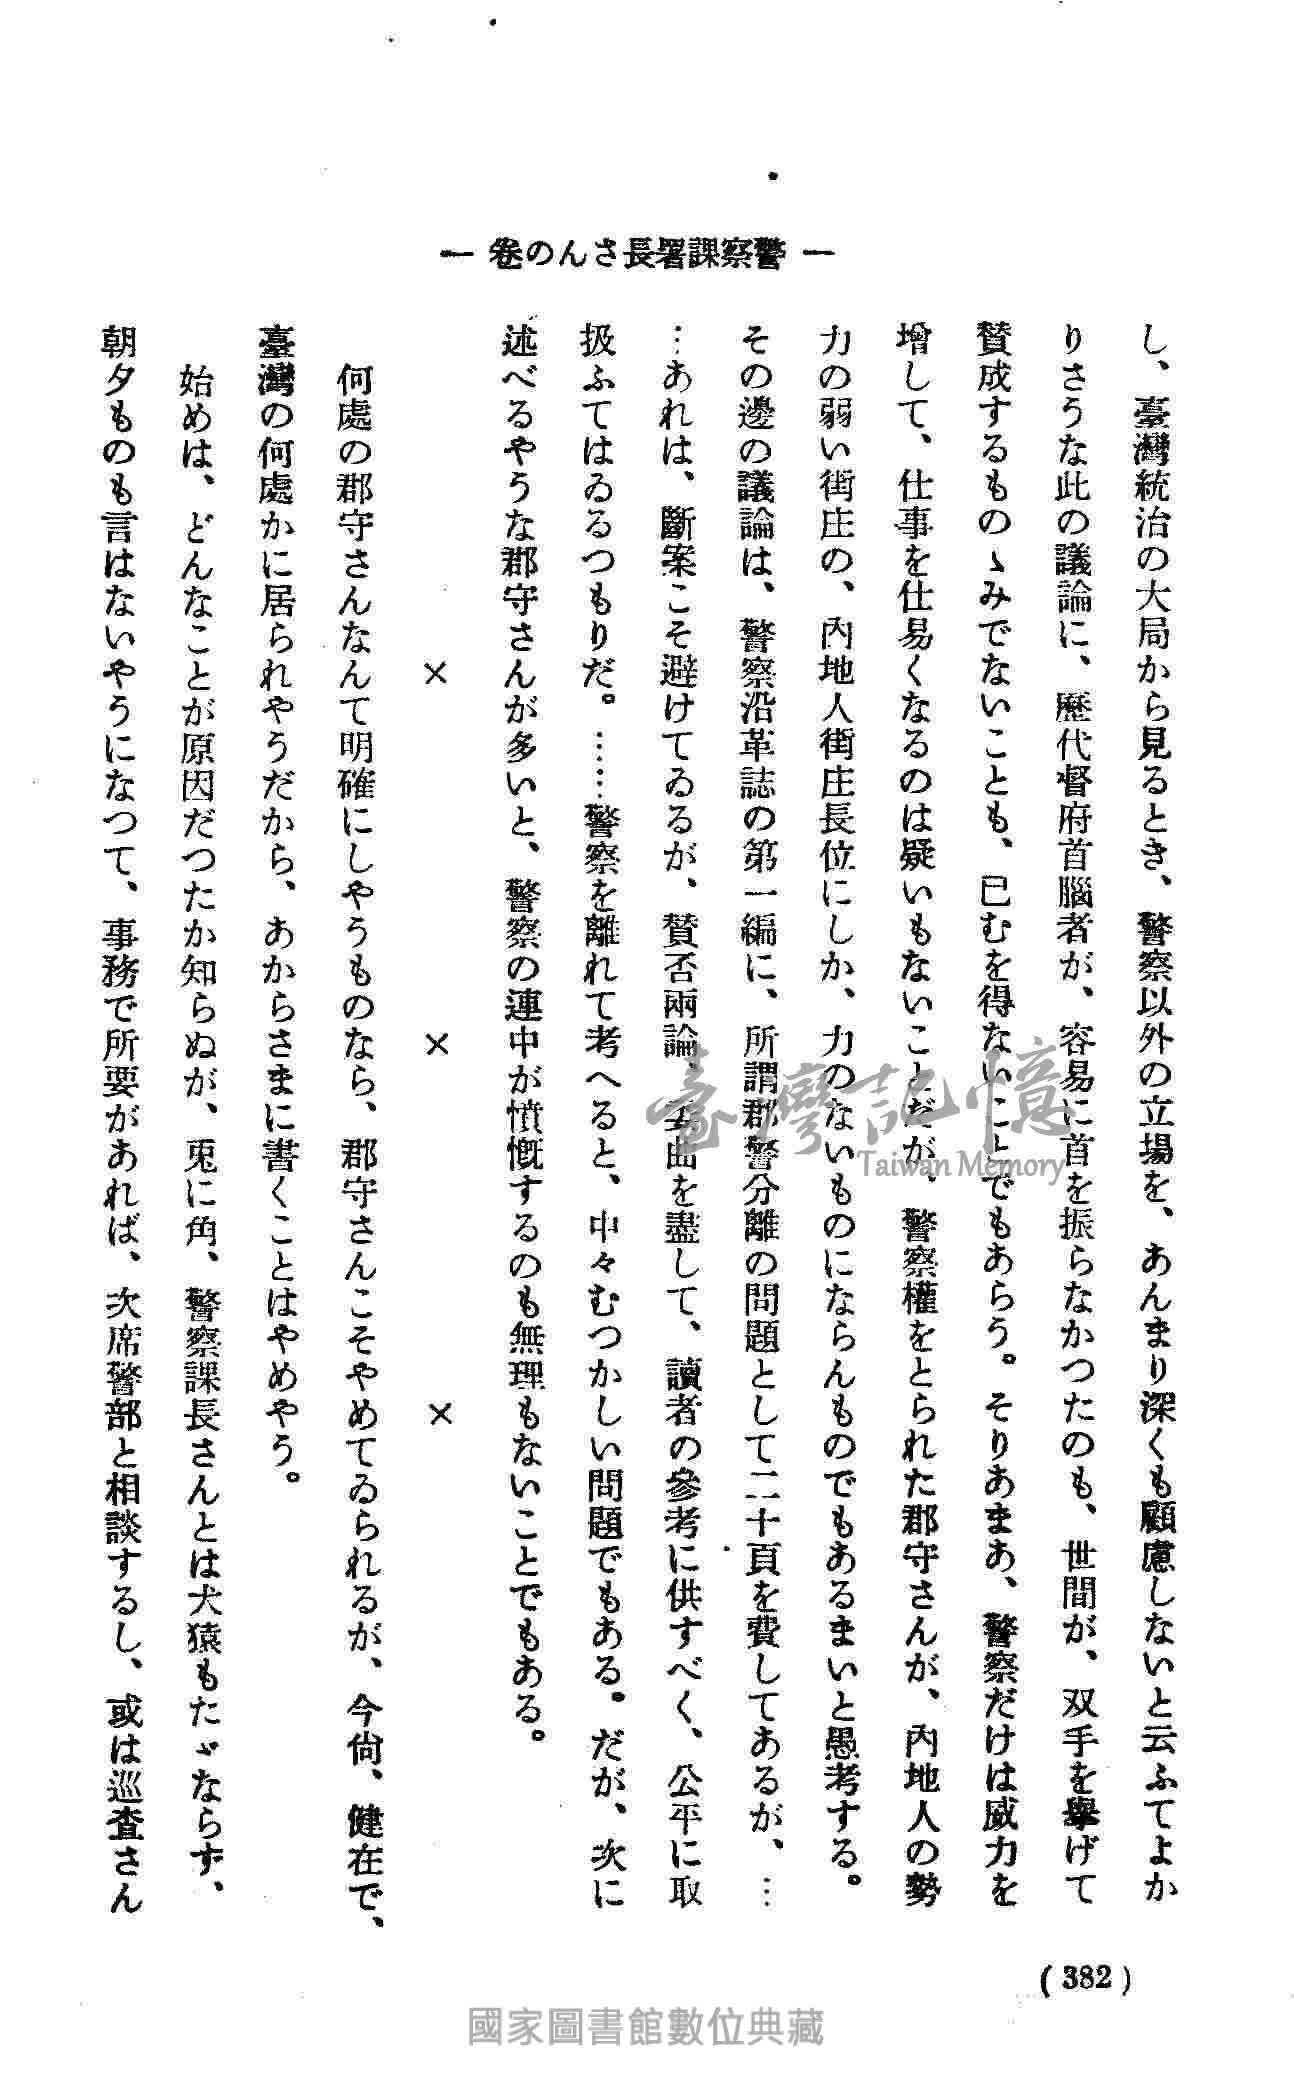 ― 警察課署長さんの卷 ―
し、臺灣統治の大局から見るとき、警察以外の立場を、あんまり深くも顧慮しないと云ふてよか
りさうな此の議論に、歷代督府首腦者が、容易に首を振らなかつたのも、世間が、双手を擧げて
賛成するものゝみでないことも、已むを得ないことでもあらう。そりあまあ、警察だけは威力を
增して、仕事を仕易くなるのは疑いもないことだが、警察權をとられた郡守さんが、內地人の勢
力の弱い街庄の、內地人街庄長位にしか、力のないものにならんものでもあるまいと愚考する。
その邊の議論は、警察沿革誌の第一編に、所謂郡警分離の問題として二十頁を費してあるが、…
…あれは、斷案こそ避けてゐるが、賛否兩論、委曲を盡して、讀者の參考に供すべく、公平に取
扱ふてはゐるつもりだ。……警察を離れて考へると、中々むつかしい問題でもある。だが、次に
述べるやうな郡守さんが多いと、警察の連中が憤慨するのも無理もないことでもある。
× × ×
何處の郡守さんなんて明確にしやうものなら、郡守さんこそやめてゐられるが、今尙、健在で、
臺灣の何處かに居られやうだから、あからさまに書くことはやめやう。
始めは、どんなことが原因だつたか知らぬが、兎に角、警察課長さんとは犬猿もたゞならず、
朝夕ものも言はないやうになつて、事務で所要があれば、次席警部と相談するし、或は巡査さん
(382)
臺灣記憶
Taiwan Memory
國家圖書館數位典藏